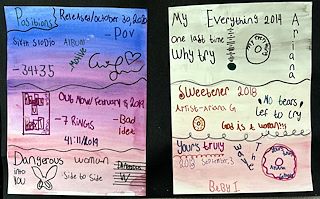 Positions
Released October 30, 2020
- POV
Sixth Studio Album
- 34+35
Out Now February 8 2019
- 7 RINGS
- Bad Idea
41:11/2019
Dangerous woman
into you
Side to Side
My Everything 2014
one last time
Why try
Sweetener 2018
Artist - Ariana G.
No tears left to cry
God is a woman
Yours truly
2013 September 3
The way
Baby I